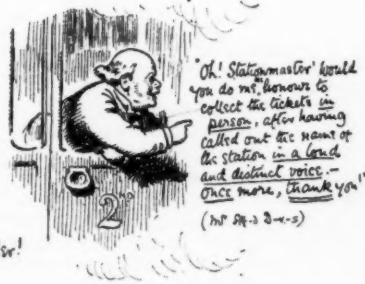 "Oh! Stationmaster' would
you do me, honour to
collect the tickets in
person, after having
called out the name of
the station in a loud
and distinct voice.—
once more, thank you"
2ND
er!